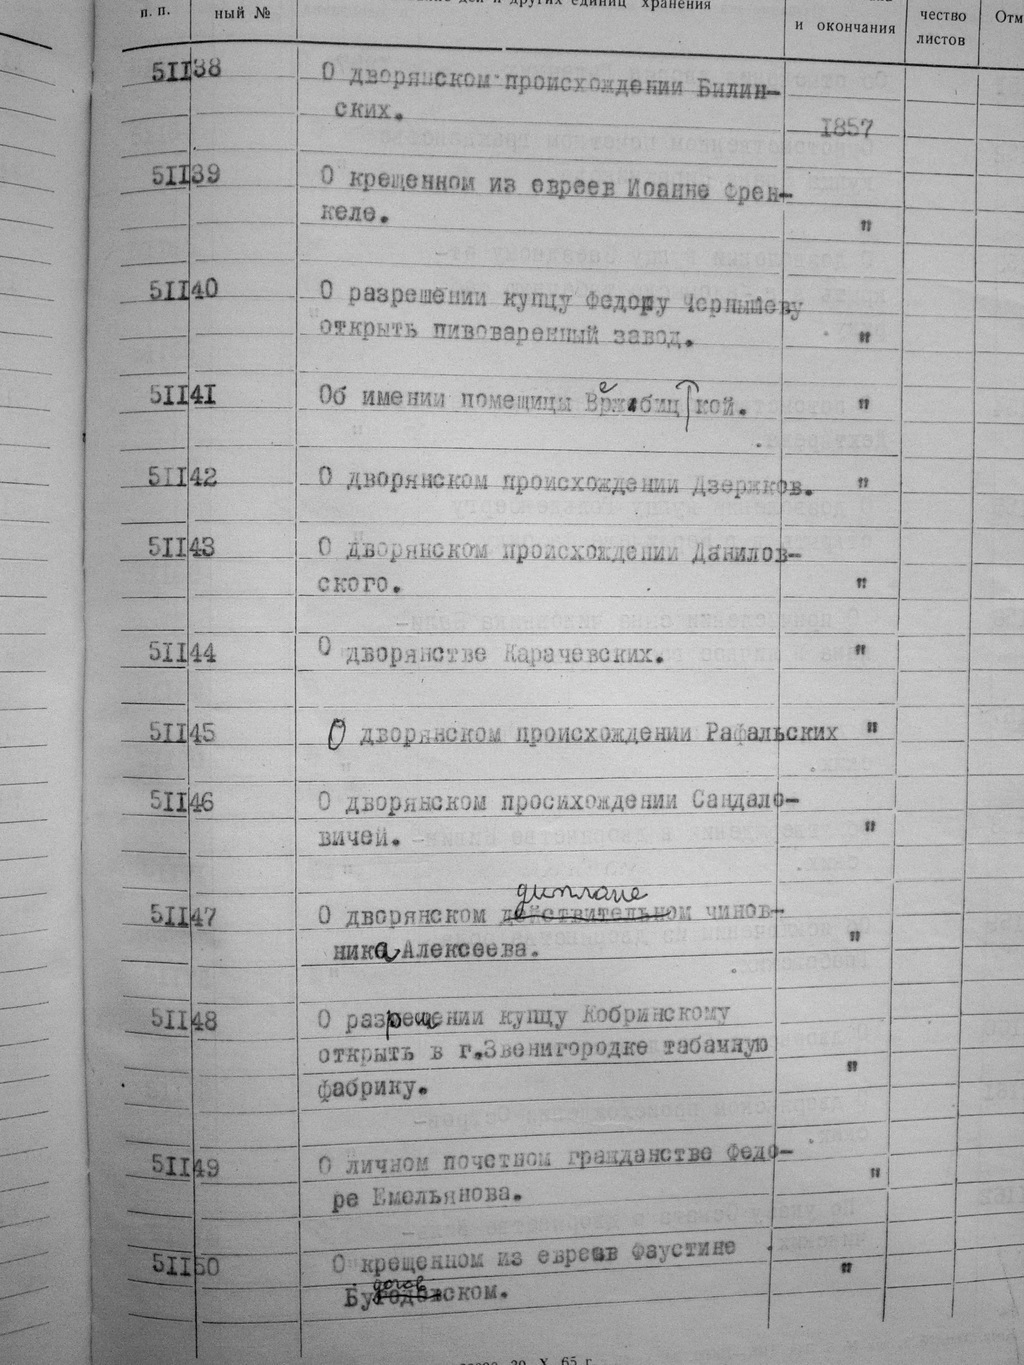 п. п.
ный №
и других единиц хранения
и окончания
чество
листов
Отм
51138
О дворянском происхождении Билин-
ских.
1857
51139
О крещенном из евреев Иоанне Френ-
келе.
"
51140
О разрешении купцу Федору Чернышеву
открыть пивоваренный завод.
"
51141
Об имении помещицы Вржебицкой.
"
51142
О дворянском происхождении Дзержков.
"
51143
О дворянском происхождении Данилов-
ского.
"
51144
О дворянстве Карачевских.
"
51145
О дворянском происхождении Рафальских
"
51146
О дворянском просихождении Сандало-
вичей.
"
дипломе
51147
О дворянском действительном чинов-
ника Алексеева.
"
51148
О разрешении купцу Кобринскому
открыть в г.Звенигородке табачную
фабрику.
"
51149
О личном почетном гражданстве Федо-
ре Емельянова.
"
51150
О крещенном из евреев Фаустине
"
ском.
65 г